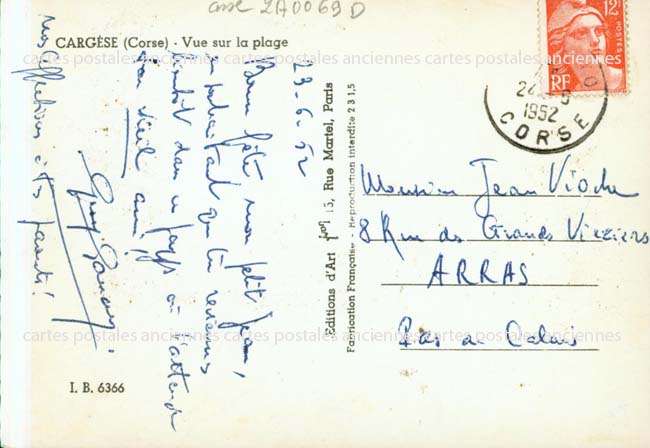 corse 2A0065D
CARGÈSE (Corse) - Vue sur la plage
12F
POSTES
RF
24 - 6
1952
CORSE
23-6-52
Bonne fête mon petit Jean,
en souhaitant que tu reviennes
bientôt dans ce pays où t'attend
ton vieil ami,
nos affections à tes parents!
Editions d'Art 15, Rue Martel, Paris
Fabrication Française - Reproduction interdite 2 3 1,5
Monsieur Jean Vioche
8 Rue des Grands Vieziers
ARRAS
Pas de Calais
cartes postales anciennes cartes postales anciennes cartes postales anciennes
cartes postales anciennes cartes postales anciennes cartes postales anciennes
I. B. 6366